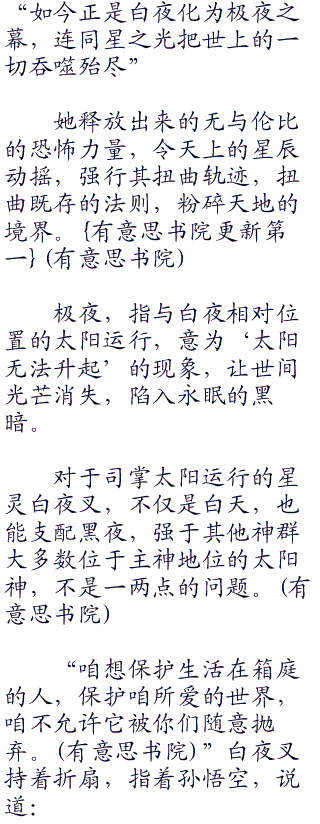 “如今正是白夜化为极夜之
幕，连同星之光把世上的一
切吞噬殆尽”
她释放出来的无与伦比
的恐怖力量，令天上的星辰
动摇，强行其扭曲轨迹，扭
曲既存的法则，粉碎天地的
境界。{有意思书院更新第
一}(有意思书院)
极夜，指与白夜相对位
置的太阳运行，意为‘太阳
无法升起’的现象，让世间
光芒消失，陷入永眠的黑
暗。
对于司掌太阳运行的星
灵白夜叉，不仅是白天，也
能支配黑夜，强于其他神群
大多数位于主神地位的太阳
神，不是一两点的问题。(有
意思书院)
“咱想保护生活在箱庭
的人，保护咱所爱的世界，
咱不允许它被你们随意抛
弃。(有意思书院)”白夜叉
持着折扇，指着孙悟空，说
道：